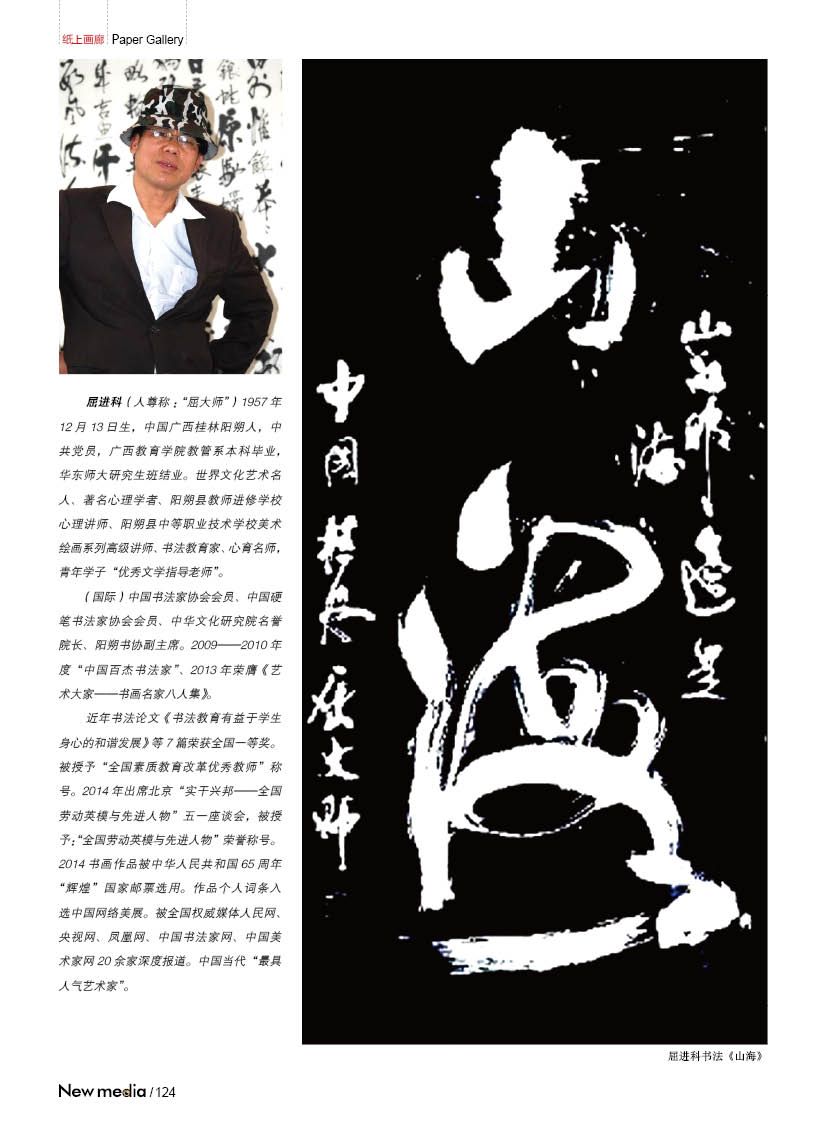 纸上画廊 Paper Gallery
屈进科（人尊称：“屈大师”）1957 年
12 月 13 日生，中国广西桂林阳朔人，中
共党员，广西教育学院教管系本科毕业，
华东师大研究生班结业。世界文化艺术名
人、著名心理学者、阳朔县教师进修学校
心理讲师、阳朔县中等职业技术学校美术
绘画系列高级讲师、书法教育家、心育名师，
青年学子“优秀文学指导老师”。
（国际）中国书法家协会会员、中国硬
笔书法家协会会员、中华文化研究院名誉
院长、阳朔书协副主席。2009——2010 年
度“中国百杰书法家”、2013 年荣膺《艺
术大家——书画名家八人集》。
近年书法论文《书法教育有益于学生
身心的和谐发展》等 7 篇荣获全国一等奖。
被授予“全国素质教育改革优秀教师”称
号。2014 年出席北京“实干兴邦——全国
劳动英模与先进人物”五一座谈会，被授
予：“全国劳动英模与先进人物”荣誉称号。
2014 书画作品被中华人民共和国 65 周年
“辉煌”国家邮票选用。作品个人词条入
选中国网络美展。被全国权威媒体人民网、
央视网、凤凰网、中国书法家网、中国美
术家网 20 余家深度报道。中国当代“最具
人气艺术家”。
山海
中國 桂林 屈大师
屈进科书法《山海》
New media / 124